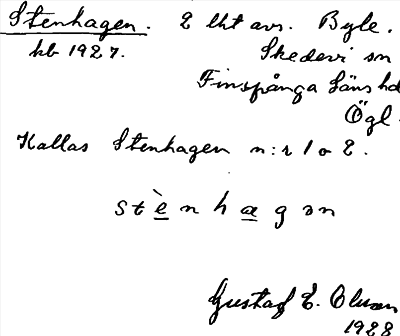 Stenhagen. 2 lht avs. Byle.
kb 1927. Skedevi sn
Finspånga läns hd
Ögl.
Kallas Stenhagen n:r 1 o 2.
stè̲nha̲gən
Gustaf E. Olson
1928